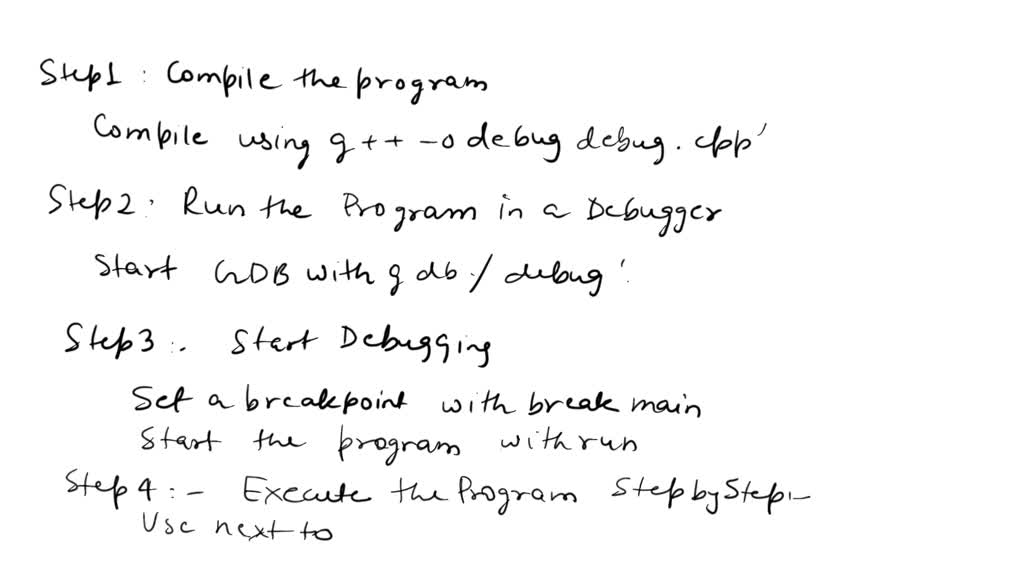 Step1 : Compile the program
Compile using g++ -o debug debug.cpp'
Step2: Run the Program in a Debugger
Start GDB with gdb ./debug'.
Step3 :. Start Debugging
Set a breakpoint with break main
Start the program with run
Step 4 : - Execute the Program Step by Step:-
Use next to